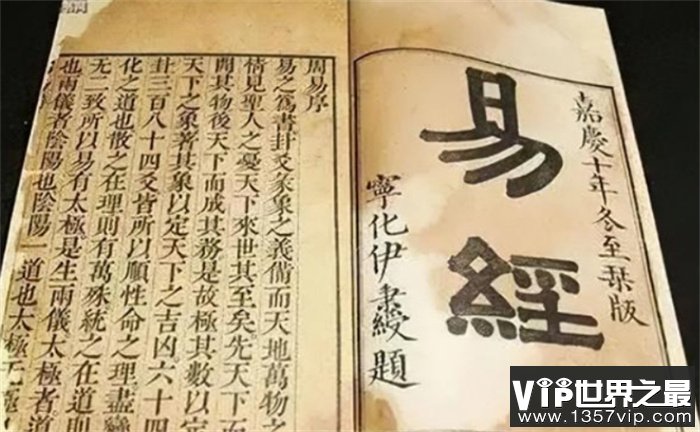 嘉慶十年冬至栞版
易經
寧化伊秉綬題
周易序
易之爲書卦爻彖象之義備而天地萬物
情見聖人之憂天下來世其至矣先天下
開其物後天下而成其務是故極其數以
天下之象著其象以定天下之吉凶六十四
卦三百八十四爻皆所以順性命之理盡變
化之道也散之在理則有萬殊統之在道則
无二致所以易有太極是生兩儀太極者道
也兩儀者陰陽也陰陽一道也太極无極
VIP世界之最
www.1357vip.com